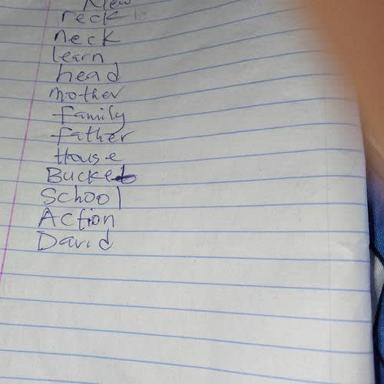 New
reck
neck
learn
head
mother
family
father
House
Bucket
School
Action
David